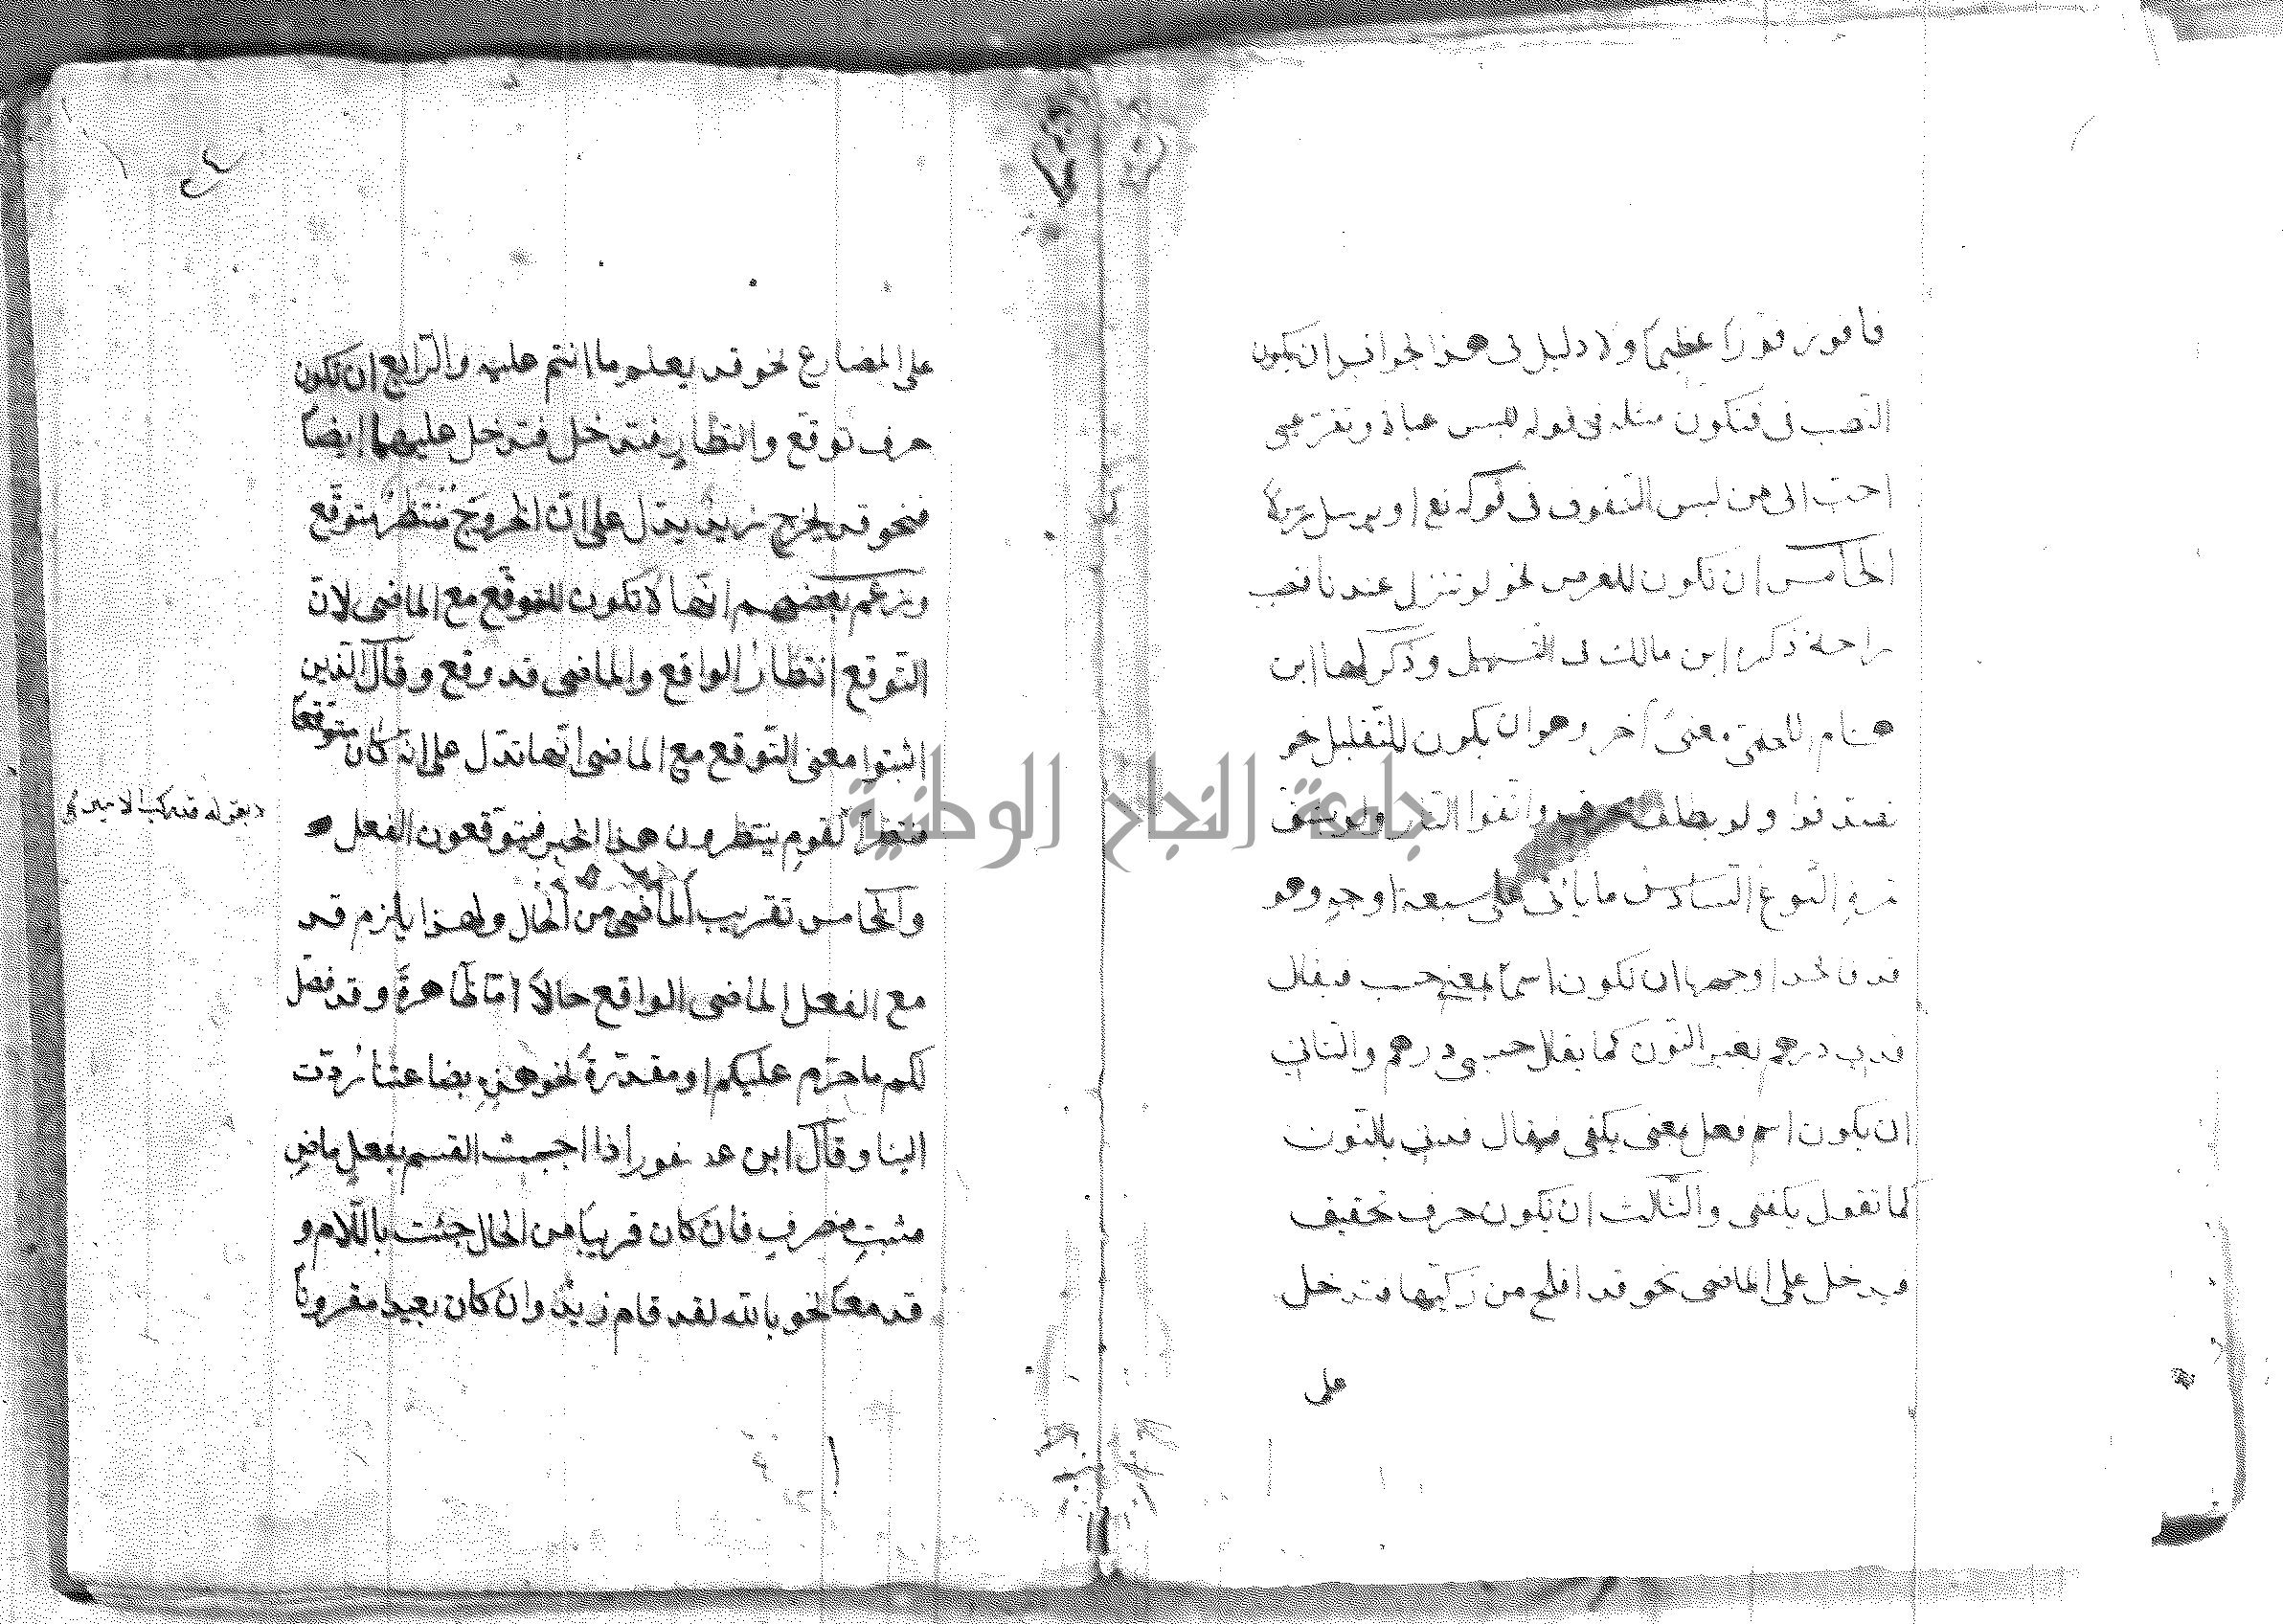 فافوز فوزا عظيما ولا دليل في هذا لجواز ان يكون
النصب في فتكون مثله في قوله للبس عباة وتقر عيني
احبّ الي من لبس الشفوف في قوله تع او يرسل رسولا
الخامس ان تكون للعرض نحو لو تنزل عندنا فتصيب
راحة ذكره ابن مالك في التسهيل وذكر لها ابن
هشام اللخمي معنىً آخر وهو ان يكون للتقليل نحو
تصدقوا ولو بظلف محرق واتقوا النار ولو بشق
تمرة النوع السادس ما ياتي على سبعة اوجه وهو
قد فاحد اوجهها ان تكون اسمًا بمعني حسب فيقال
قدي درهم بغير النون كما يقال حسبي درهم والثاني
ان يكون اسم فعل بمعنى يكفي فيقال قدني بالنون
كما تقول يكفني والثالث ان يكون حرف تحقيق
فيدخل على الماضي نحو قد افلح من زكيها فتدخل
على
على المضارع نحو قد يعلم ما انتم عليه والرّابع ان تكون
حرف توقع وانتظار فتدخل فتدخل عليهما ايضًا
فنحو قد يخرج زيدٌ يدل على انّ الخروج منتظرٌ متوقع
وزعم بعضهم انّها لا تكون للتوقع مع الماضي لانّ
التوقع انتظارُ الواقع والماضي قد وقع وقال الّذين
اثبتوا معنى التّوقع مع الماضي انّها تدل على انه كان متوقعًا
منتظرًا لقوم ينتظرون هذا الخبر فيتوقعون الفعل
والخامس تقريب الماضي من الحال ولهذا يلزم قد
مع الفعل الماضي الواقع حالاً امّا ظاهرةً وقد فصّل
لكم ما حرّم عليكم او مقدّرةً نحو هذه بضاعتنا رُدّت
الينا وقال ابن عصفور اذا اجبت القسم بفعلٍ ماضٍ
مثبتٍ متصرفٍ فان كان قريبًا من الحال جئت باللّام و
قد معًا نحو بالله لقد قام زيدٌ وان كان بعيدا مقرونًا
جامعة النجاح الوطنية